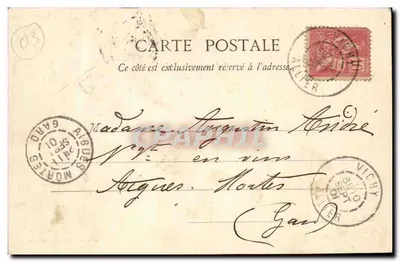 03
CARTE POSTALE
Ce côté est exclusivement réservé à l'adresse
VICHY
ALLIER
Madame Augustin André
Ngt en vins
Aigues-Mortes
(Gard)
AIGUES MORTES
GARD
01
VICHY
10